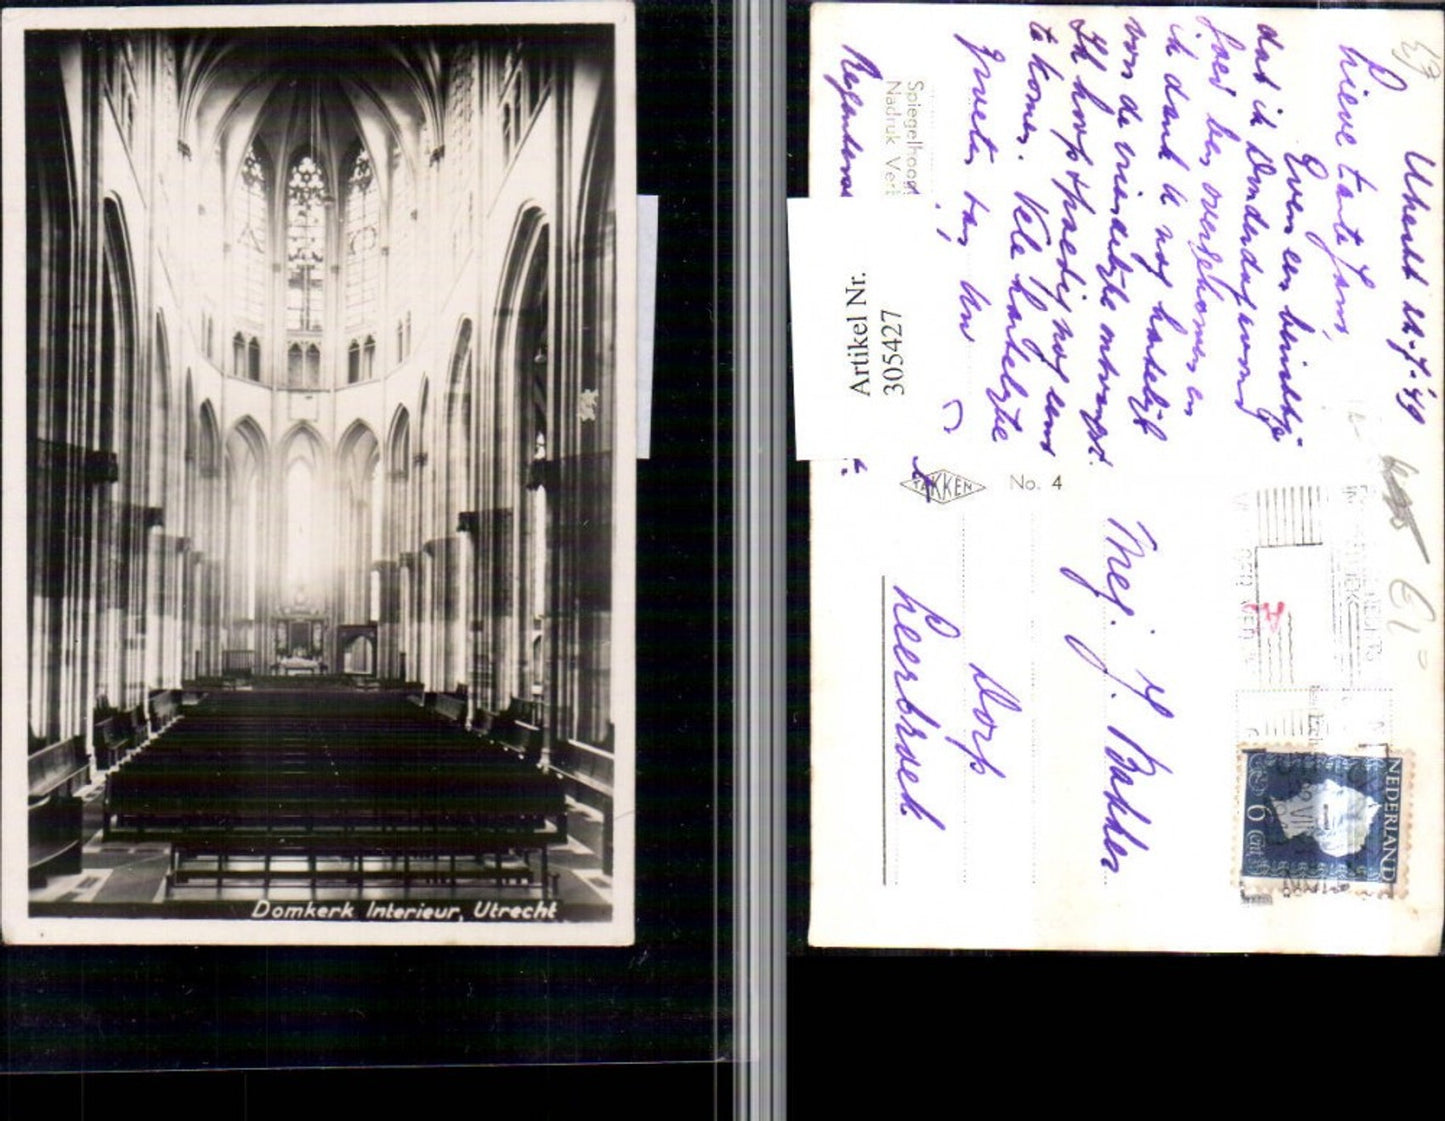 Domkerk Interieur, Utrecht
Utrecht 22-7-'49
Lieve tante Jans,
Even een berichtje
dat ik Donderdagavond
goed ben overgekomen en
ik dank U nog hartelijk
voor de vriendelijke ontvangst.
Ik hoop spoedig nog eens
te komen. Vele hartelijke
groeten van Uw
Spiegelhoog
Nadruk Ver
Artikel Nr.
305427
TAKKEN No. 4
Mej. J. Bakker
Dorp
Leerbroek
NEDERLAND
6 cent